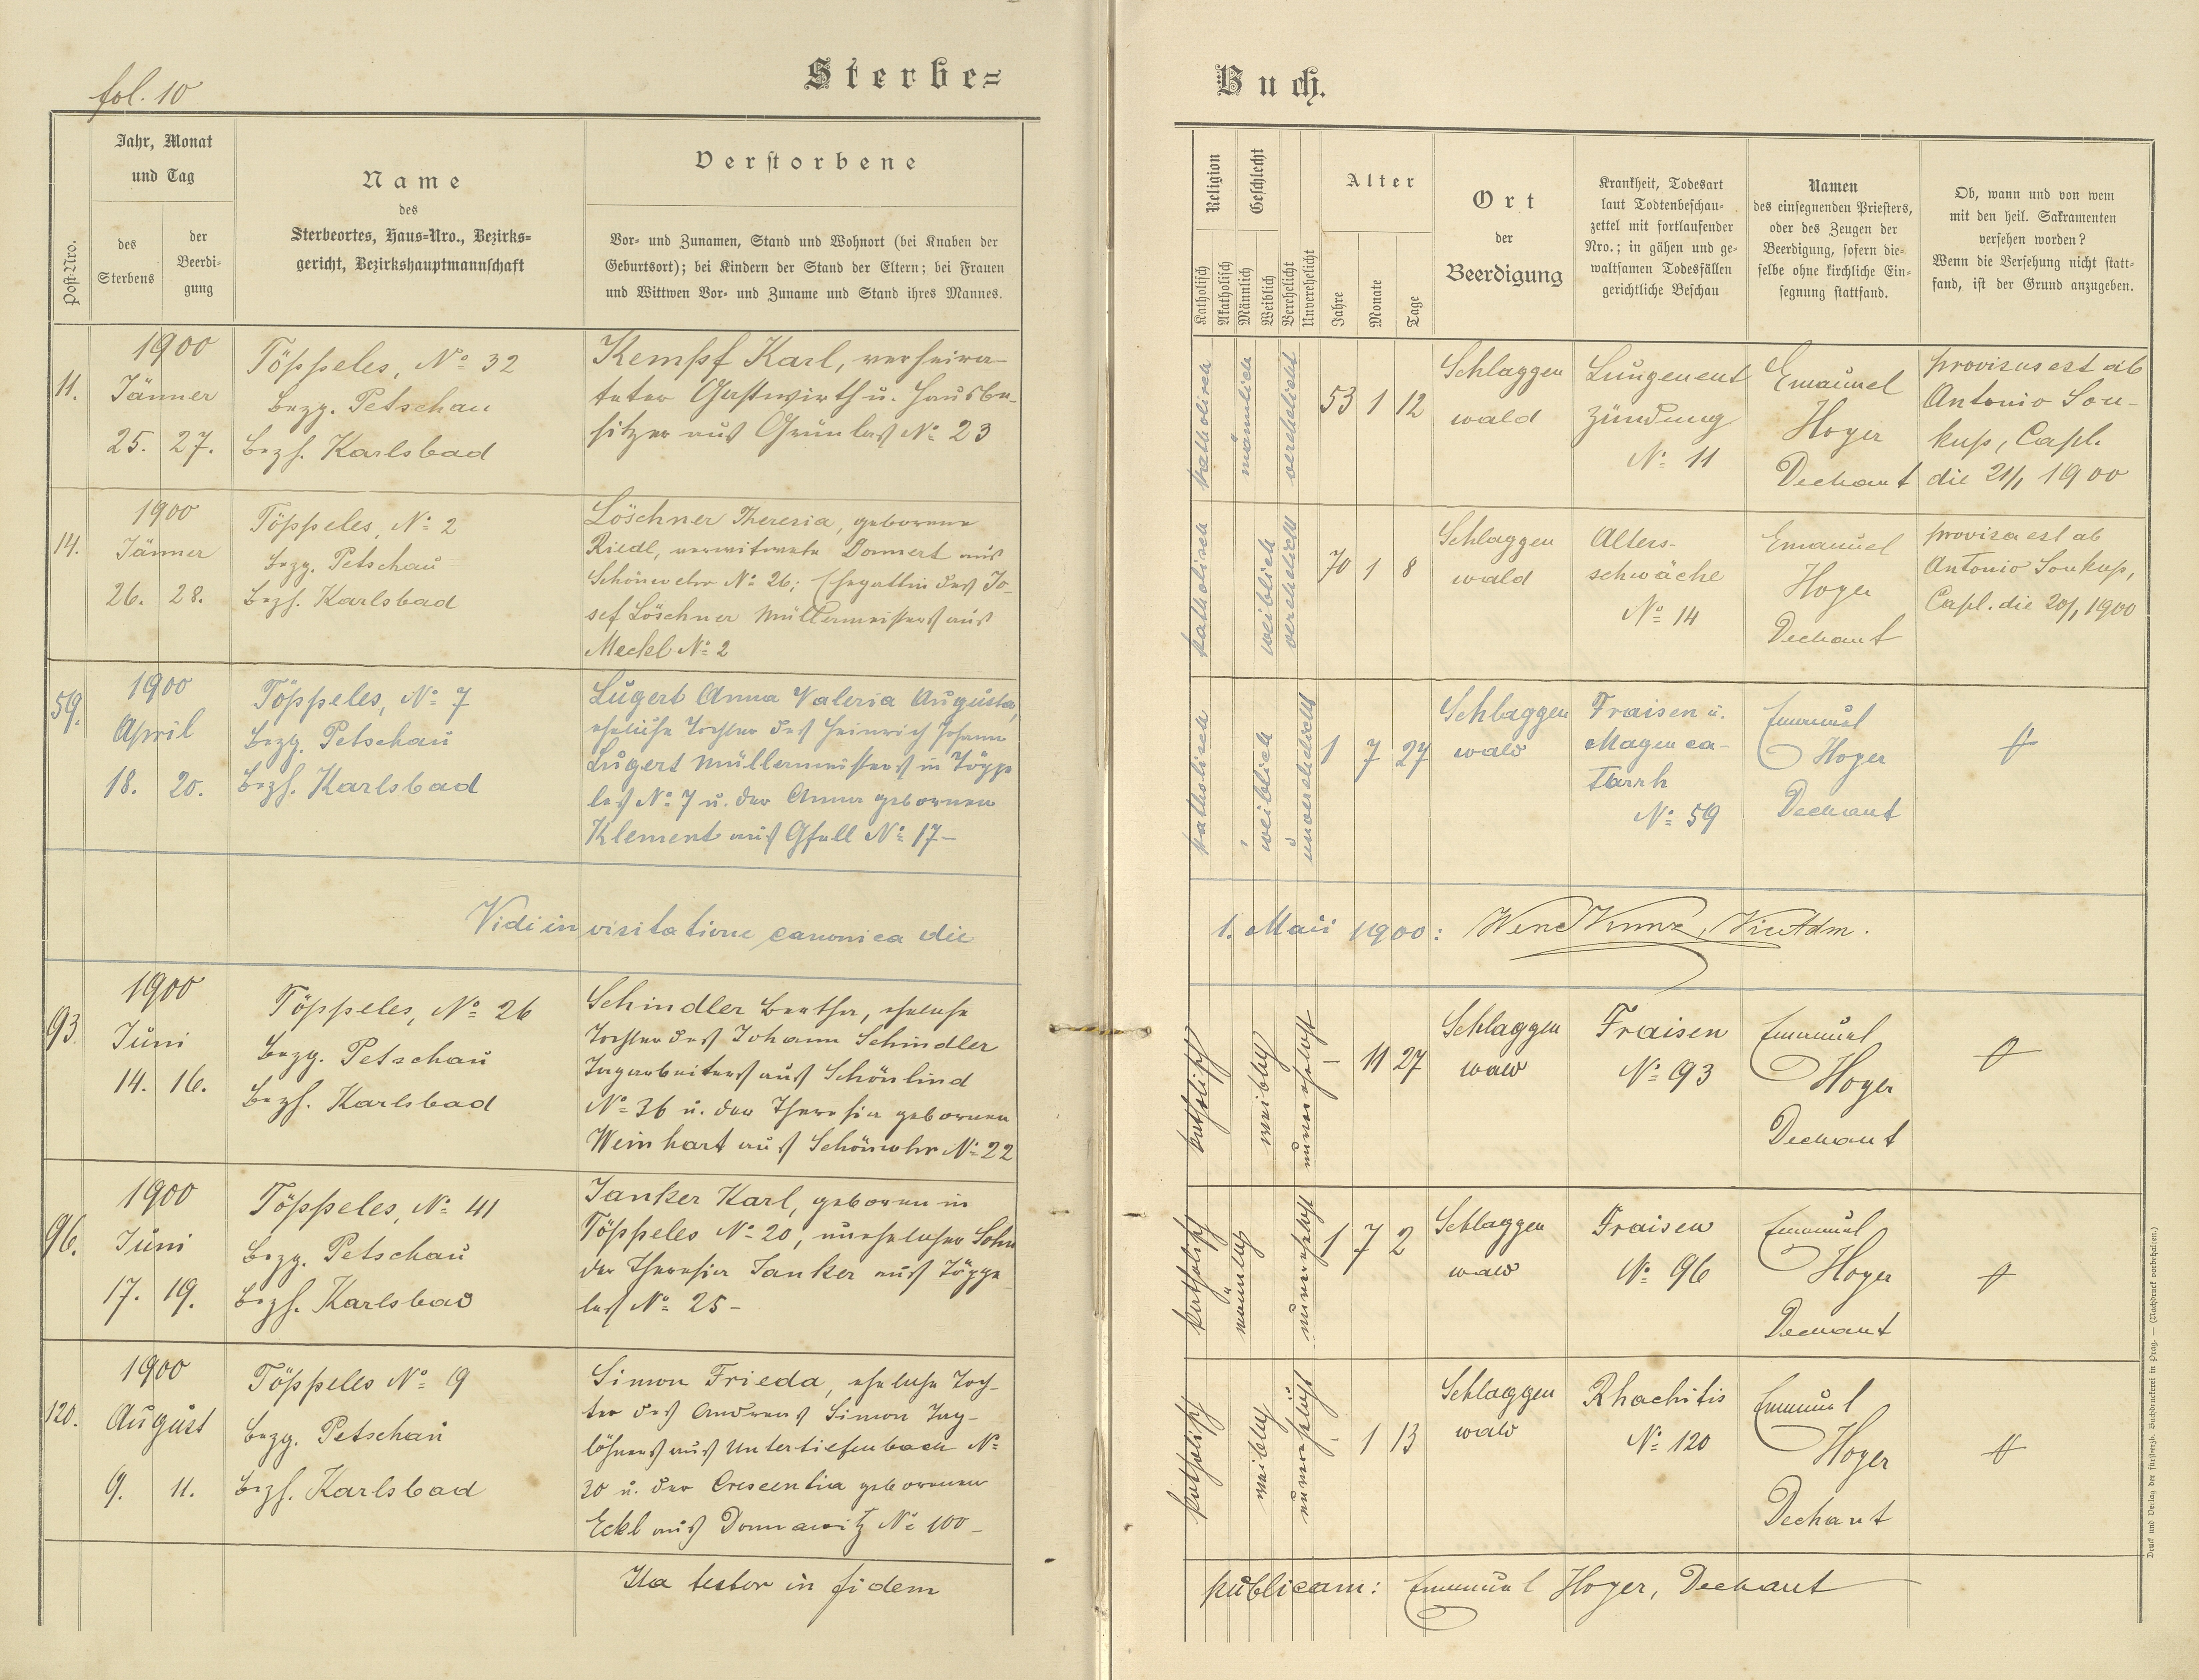 fol. 10
Sterbe=
Buch.
Post-Nro.
Jahr, Monat
und Tag
des
Sterbens
der
Beerdi-
gung
Name
des
Sterbeortes, Haus-Nro., Bezirks-
gericht, Bezirkshauptmannschaft
Verstorbene
Vor- und Zunamen, Stand und Wohnort (bei Knaben der
Geburtsort); bei Kindern der Stand der Eltern; bei Frauen
und Wittwen Vor- und Zuname und Stand ihres Mannes.
Religion
Katholisch
Akatholisch
Geschlecht
Männlich
Weiblich
Verehelicht
Unverehelicht
Alter
Jahre
Monate
Tage
Ort
der
Beerdigung
Krankheit, Todesart
laut Todtenbeschau-
zettel mit fortlaufender
Nro.; in gähen und ge-
waltsamen Todesfällen
gerichtliche Beschau
Namen
des einsegnenden Priesters,
oder des Zeugen der
Beerdigung, sofern die-
selbe ohne kirchliche Ein-
segnung stattfand.
Ob, wann und von wem
mit den heil. Sakramenten
versehen worden?
Wenn die Versehung nicht statt-
fand, ist der Grund anzugeben.
11.
1900
Jänner
25. 27.
Töppeles, No 32
Bezg. Petschau
Bezh. Karlsbad
Kempf Karl, verheira-
teter Gastwirth u. Hausbe-
sitzer aus Grünlas No 23
katholisch
männlich
verehelicht
53 1 12
Schlaggen
wald
Lungenent
zündung
No 11
Emanuel
Hoyer
Dechant
provisus est ab
Antonio Sou-
kup, Capl.
die 21/1 1900
14.
1900
Jänner
26. 28.
Töppeles, No 2
Bezg. Petschau
Bezh. Karlsbad
Löschner Theresia, geborene
Riedl, verwitwete Donnert aus
Schönwehr No 26; Ehegattin des Jo-
sef Löschner Müllermeisters aus
Meckl No 2
katholisch
weiblich
verehelicht
70 1 8
Schlaggen
wald
Alters-
schwäche
No 14
Emanuel
Hoyer
Dechant
provisa est ab
Antonio Soukup,
Capl. die 20/1 1900
59.
1900
April
18. 20.
Töppeles, No 7
Bezg. Petschau
Bezh. Karlsbad
Lugert Anna Valeria Augusta,
eheliche Tochter des Heinrich Johann
Lugert Müllermeisters in Töppe
les No 7 u. der Anna geborenen
Klement aus Gfell No 17-
katholisch
weiblich
unverehelicht
1 7 27
Schlaggen
wald
Fraisen u.
Magenca-
tarrh
No 59
Emanuel
Hoyer
Dechant
Vidi in visitatione canonica die
1. Maii 1900:
93.
1900
Juni
14. 16.
Töppeles, No 26
Bezg. Petschau
Bezh. Karlsbad
Schindler Bertha, eheliche
Tochter des Johann Schindler
Tagarbeiters aus Schönlind
No 36 u. der Theresia geborenen
Weinhart aus Schönwehr No 22
katholisch
weiblich
unverehelicht
- 11 27
Schlaggen
wald
Fraisen
No 93
Emanuel
Hoyer
Dechant
96.
1900
Juni
17. 19.
Töppeles, No 41
Bezg. Petschau
Bezh. Karlsbad
Janker Karl, geboren in
Töppeles No 20, unehelicher Sohn
der Theresia Janker aus Töppe
les No 25-
katholisch
männlich
unverehelicht
1 7 2
Schlaggen
wald
Fraisen
No 96
Emanuel
Hoyer
Dechant
120.
1900
August
9. 11.
Töppeles No 9
Bezg. Petschau
Bezh. Karlsbad
Simon Frieda, eheliche Toch-
ter des Andreas Simon Tag-
löhners aus Untertiefenbach No
30 u. der Crescentia geborenen
Eckl aus Donnawitz No 100-
katholisch
weiblich
unverehelicht
- 1 13
Schlaggen
wald
Rhachitis
No 120
Emanuel
Hoyer
Dechant
Ita testor in fidem
publicam: Emanuel Hoyer, Dechant
Druck und Verlag der fürsterzb. Buchdruckerei in Prag. — (Nachdruck vorbehalten.)